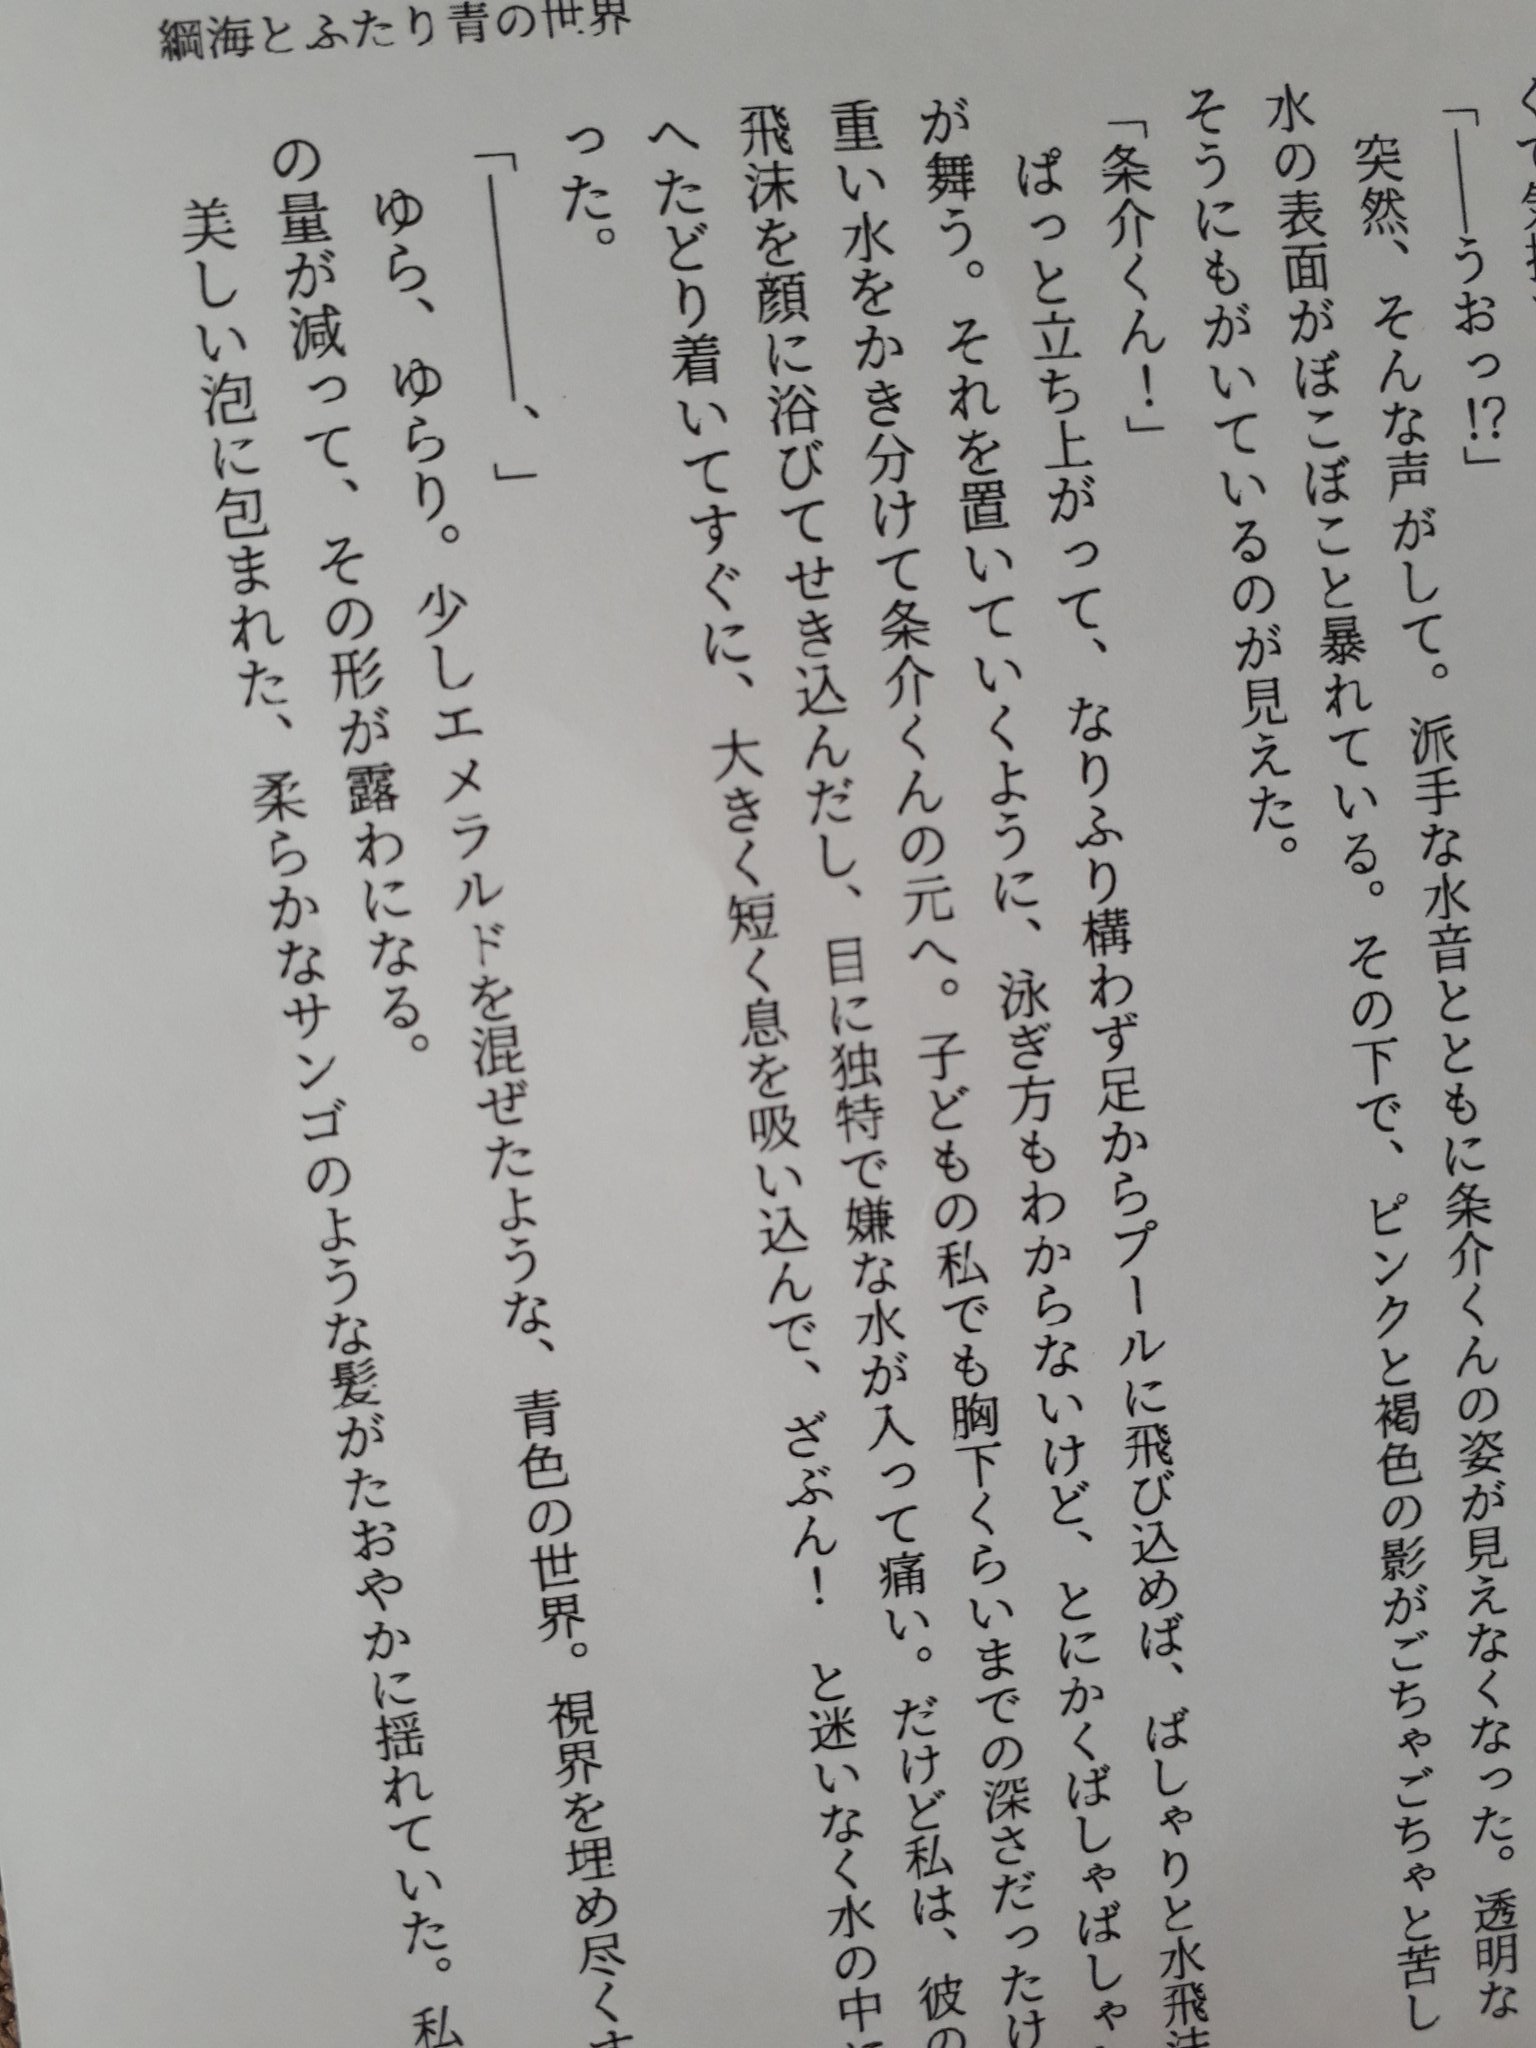 綱海とふたり青の世界
「――うおっ!?」
突然、そんな声がして。派手な水音とともに条介くんの姿が見えなくなった。透明な
水の表面がぼこぼこと暴れている。その下で、ピンクと褐色の影がごちゃごちゃと苦し
そうにもがいているのが見えた。
「条介くん！」
ぱっと立ち上がって、なりふり構わず足からプールに飛び込めば、ばしゃりと水飛沫
が舞う。それを置いていくように、泳ぎ方もわからないけど、とにかくばしゃばしゃ
重い水をかき分けて条介くんの元へ。子どもの私でも胸下くらいまでの深さだったけ
飛沫を顔に浴びてせき込んだし、目に独特で嫌な水が入って痛い。だけど私は、彼の
へたどり着いてすぐに、大きく短く息を吸い込んで、ざぶん！　と迷いなく水の中に
った。
「――――、」
ゆら、ゆらり。少しエメラルドを混ぜたような、青色の世界。視界を埋め尽くす
の量が減って、その形が露わになる。
美しい泡に包まれた、柔らかなサンゴのような髪がたおやかに揺れていた。私